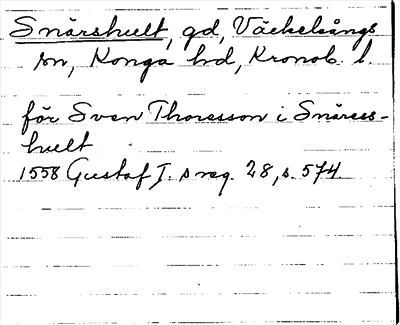 Snårshult, gd, Väckelsångs
sn, Konga hd, Kronob. l.
för Sven Thoresson i Snårees-
hult
1558 Gustaf I. s reg. 28, s. 574.